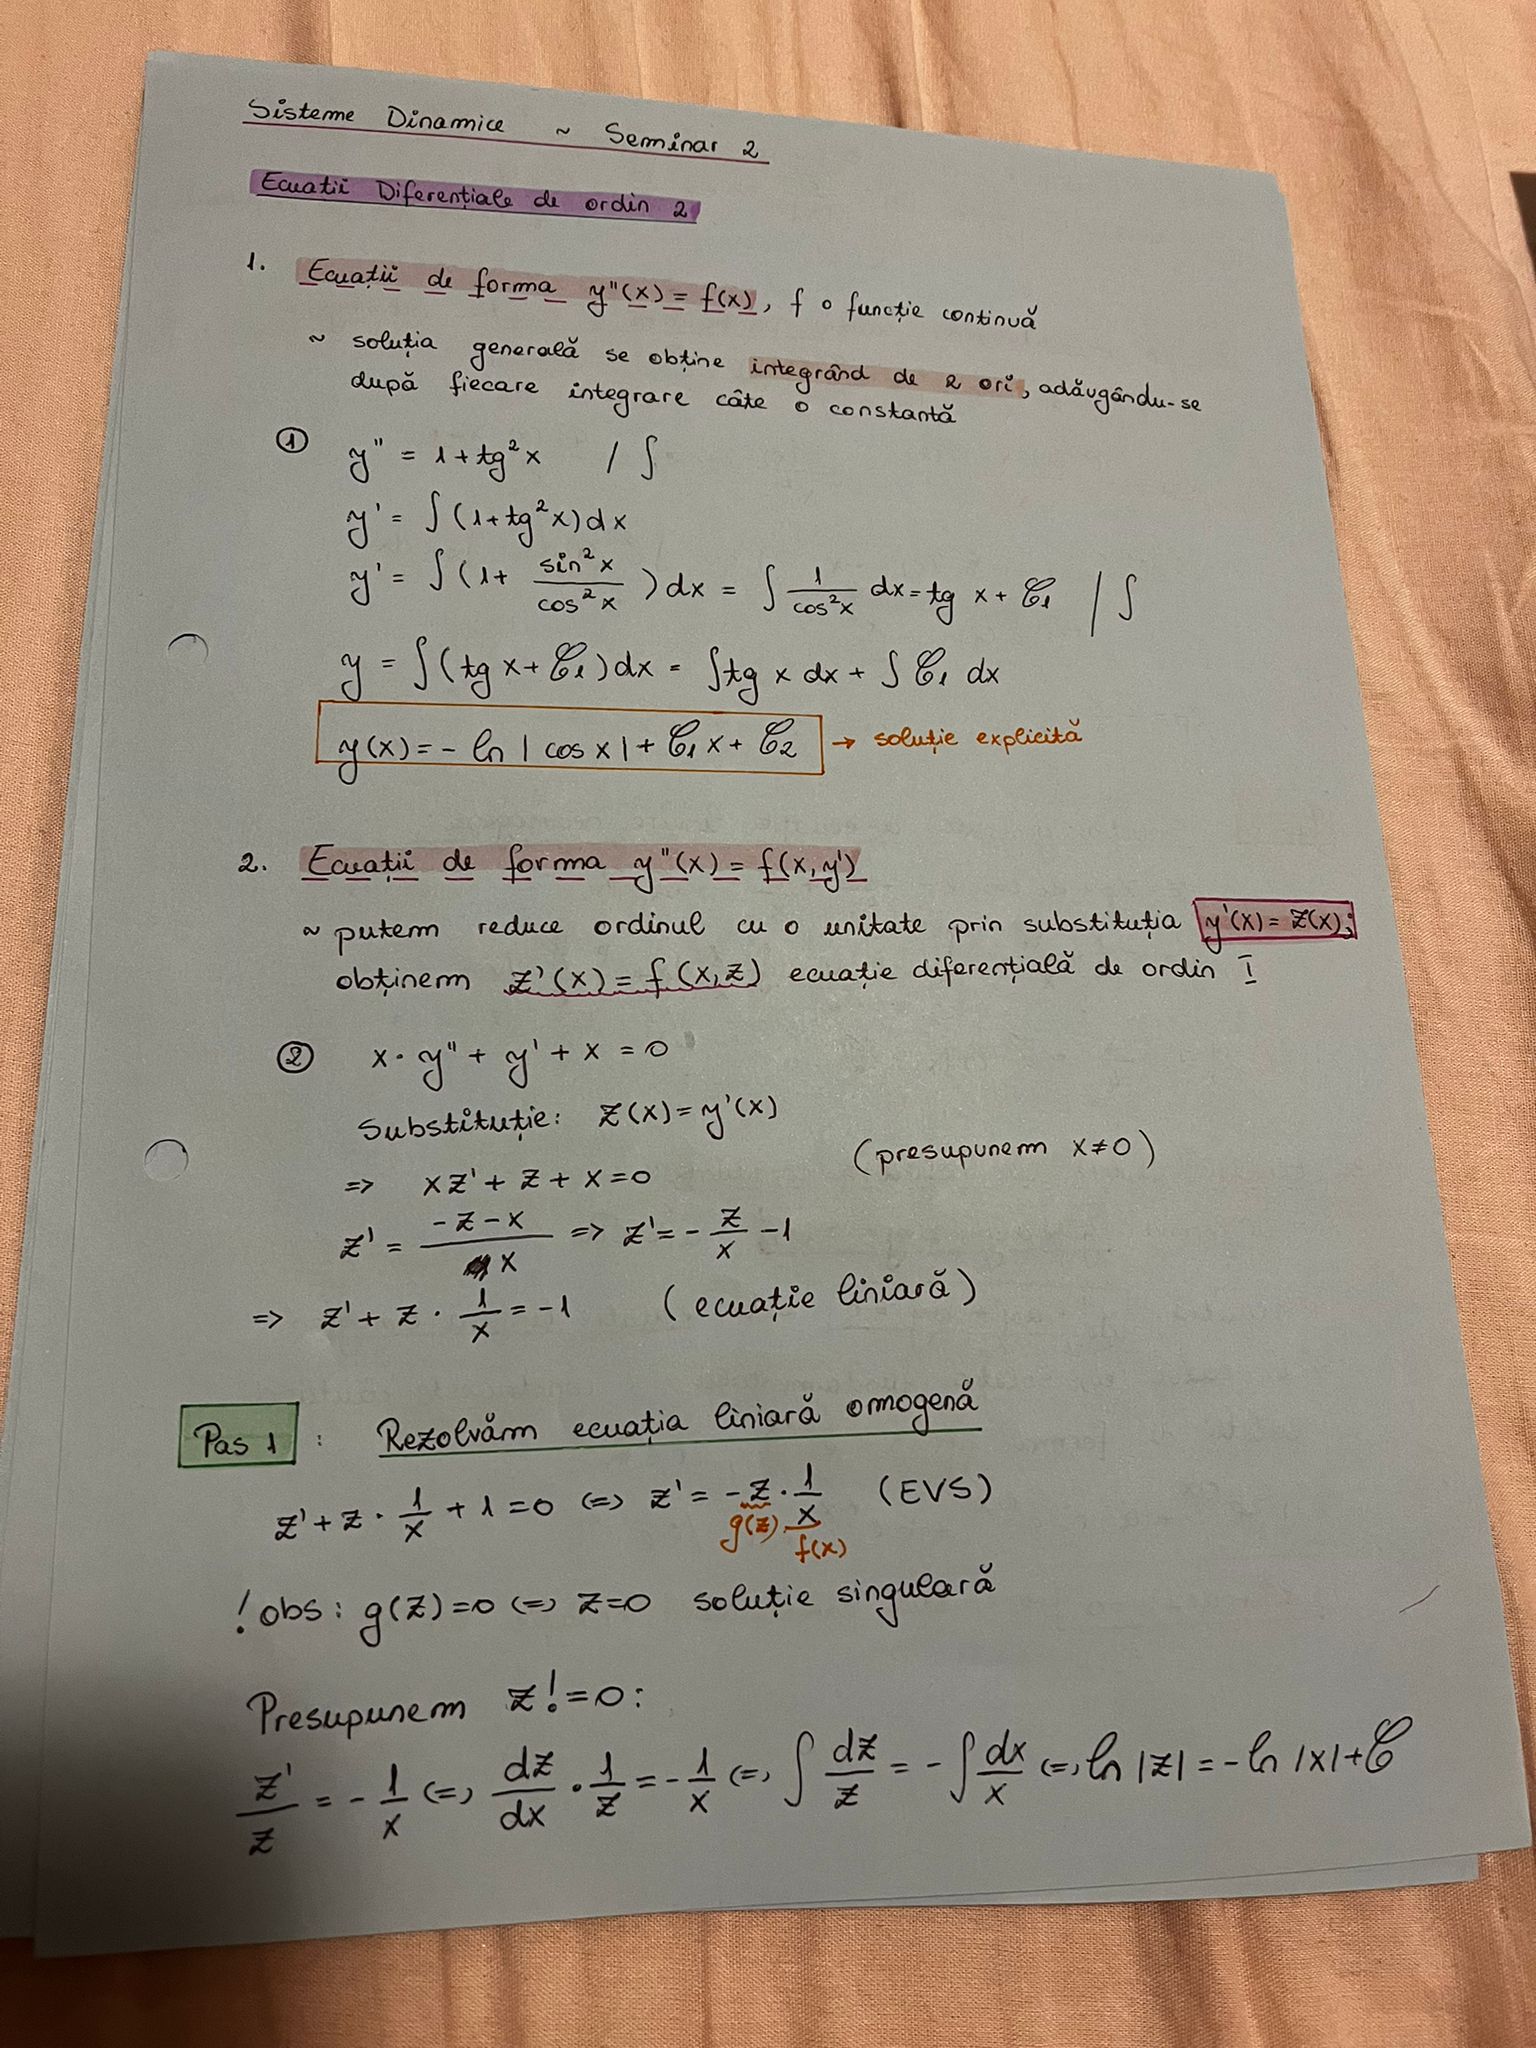 Sisteme Dinamice ~ Seminar 2
Ecuatii Diferențiale de ordin 2
1. Ecuații de forma y"(x) = f(x), f o funcție continuă
~ soluția generală se obține integrând de 2 ori, adăugându-se
după fiecare integrare câte o constantă
① y" = 1 + tg²x / ∫
y' = ∫(1 + tg²x)dx
y' = ∫(1 + sin²x/cos²x)dx = ∫ 1/cos²x dx = tg x + C₁ / ∫
y = ∫(tg x + C₁)dx = ∫tg x dx + ∫ C₁ dx
y(x) = - ln | cos x | + C₁ x + C₂ → soluție explicită
2. Ecuații de forma y"(x) = f(x, y')
~ putem reduce ordinul cu o unitate prin substituția y'(x) = z(x);
obținem z'(x) = f(x, z) ecuație diferențială de ordin I
② x · y" + y' + x = 0
Substituție: z(x) = y'(x)
(presupunem x ≠ 0)
=> xz' + z + x = 0
z' = (-z - x)/x => z' = - z/x - 1
=> z' + z · 1/x = -1 (ecuație liniară)
Pas 1 : Rezolvăm ecuația liniară omogenă
z' + z · 1/x + 1 = 0 (=> z' = -z · 1/x (EVS)
g(z) f(x)
! obs: g(z) = 0 (=> z = 0 soluție singulară
Presupunem z != 0:
z'/z = - 1/x (=> dz/dx · 1/z = - 1/x (=> ∫ dz/z = - ∫ dx/x (=> ln |z| = - ln |x| + C